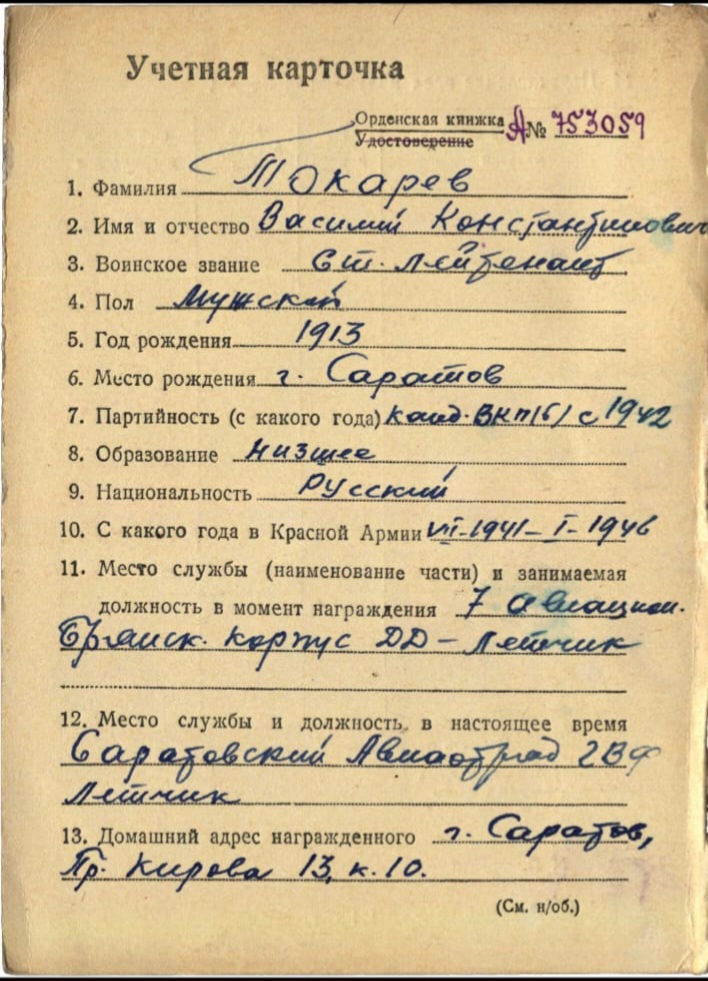 Учетная карточка
Орденская книжка А № 753059
Удостоверение
1. Фамилия Токарев
2. Имя и отчество Василий Константинович
3. Воинское звание Ст. лейтенант
4. Пол Мужской
5. Год рождения 1913
6. Место рождения г. Саратов
7. Партийность (с какого года) канд. ВКП(б) с 1942
8. Образование низшее
9. Национальность Русский
10. С какого года в Красной Армии VII-1941-I-1946
11. Место службы (наименование части) и занимаемая
должность в момент награждения 7 Авиацион.
Брянск. корпус ДД – Летчик
12. Место службы и должность в настоящее время
Саратовский Авиаотряд ГВФ
Летчик
13. Домашний адрес награжденного г. Саратов,
Пр. Кирова 13, к. 10.
(См. н/об.)